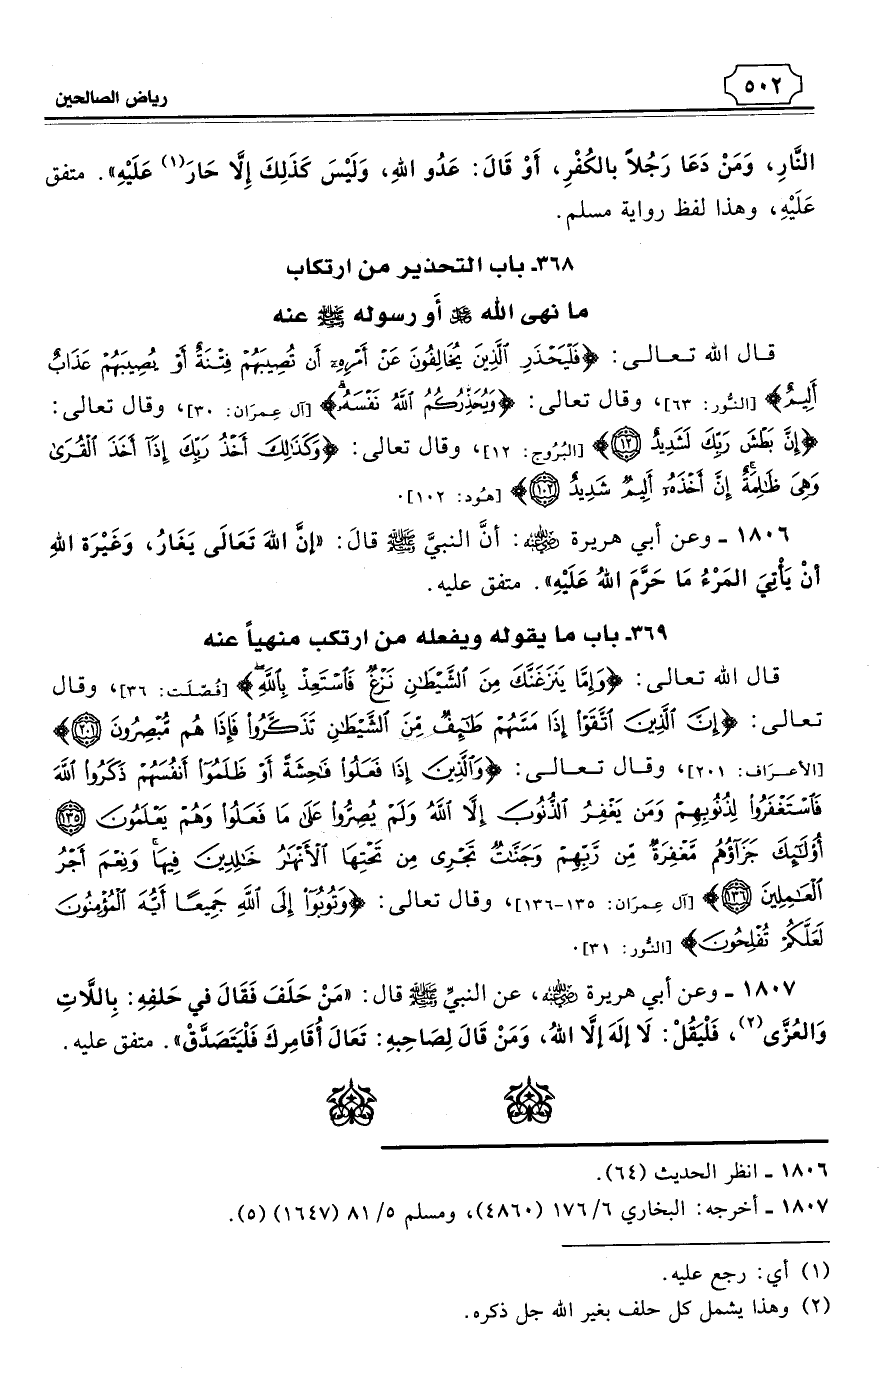 ٥٠٢
رياض الصالحين
النَّارِ، وَمَنْ دَعَا رَجُلاً بالكُفْرِ، أَوْ قَالَ: عَدُو اللهِ، وَلَيْسَ كَذَلِكَ إِلَّا حَارَ(١) عَلَيْهِ». متفق
عَلَيْهِ، وهذا لفظ رواية مسلم.
٣٦٨ـ باب التحذير من ارتكاب
ما نهى الله ﷻ أو رسوله ﷺ عنه
قال الله تعالى: ﴿فَلْيَحْذَرِ الَّذِينَ يُخَالِفُونَ عَنْ أَمْرِهِ أَن تُصِيبَهُمْ فِتْنَةٌ أَوْ يُصِيبَهُمْ عَذَابٌ
أَلِيمٌ﴾ [النُّور: ٦٣]، وقال تعالى: ﴿وَيُحَذِّرُكُمُ اللَّهُ نَفْسَهُ﴾ [آل عِمرَان: ٣٠]، وقال تعالى:
﴿إِنَّ بَطْشَ رَبِّكَ لَشَدِيدٌ ١٢﴾ [البُرُوج: ١٢]، وقال تعالى: ﴿وَكَذَٰلِكَ أَخْذُ رَبِّكَ إِذَا أَخَذَ الْقُرَىٰ
وَهِيَ ظَالِمَةٌ إِنَّ أَخْذَهُ أَلِيمٌ شَدِيدٌ ١٠٢﴾ [هُود: ١٠٢].
١٨٠٦ ـ وعن أبي هريرة رضي الله عنه: أنَّ النبيَّ ﷺ قالَ: «إنَّ اللهَ تَعَالَى يَغَارُ، وَغَيْرَة اللهِ
أنْ يَأْتِيَ المَرْءُ مَا حَرَّمَ اللهُ عَلَيْهِ». متفق عليه.
٣٦٩ـ باب ما يقوله ويفعله من ارتكب منهياً عنه
قال الله تعالى: ﴿وَإِمَّا يَنزَغَنَّكَ مِنَ الشَّيْطَانِ نَزْغٌ فَاسْتَعِذْ بِاللَّهِ﴾ [فُصِّلَت: ٣٦]، وقال
تعالى: ﴿إِنَّ الَّذِينَ اتَّقَوْا إِذَا مَسَّهُمْ طَائِفٌ مِّنَ الشَّيْطَانِ تَذَكَّرُوا فَإِذَا هُم مُّبْصِرُونَ ٢٠١﴾
[الأعرَاف: ٢٠١]، وقال تعالى: ﴿وَالَّذِينَ إِذَا فَعَلُوا فَاحِشَةً أَوْ ظَلَمُوا أَنفُسَهُمْ ذَكَرُوا اللَّهَ
فَاسْتَغْفَرُوا لِذُنُوبِهِمْ وَمَن يَغْفِرُ الذُّنُوبَ إِلَّا اللَّهُ وَلَمْ يُصِرُّوا عَلَىٰ مَا فَعَلُوا وَهُمْ يَعْلَمُونَ ١٣٥
أُولَٰئِكَ جَزَاؤُهُم مَّغْفِرَةٌ مِّن رَّبِّهِمْ وَجَنَّاتٌ تَجْرِي مِن تَحْتِهَا الْأَنْهَارُ خَالِدِينَ فِيهَا وَنِعْمَ أَجْرُ
الْعَامِلِينَ ١٣٦﴾ [آل عِمرَان: ١٣٥-١٣٦]، وقال تعالى: ﴿وَتُوبُوا إِلَى اللَّهِ جَمِيعًا أَيُّهَ الْمُؤْمِنُونَ
لَعَلَّكُمْ تُفْلِحُونَ﴾ [النُّور: ٣١].
١٨٠٧ ـ وعن أبي هريرة رضي الله عنه، عن النبيِّ ﷺ قال: «مَنْ حَلَفَ فَقَالَ في حَلفِهِ: بِاللَّاتِ
وَالعُزَّى(٢)، فَلْيَقُلْ: لَا إلَهَ إلَّا اللهُ، وَمَنْ قَالَ لِصَاحِبهِ: تَعَالَ أُقَامِركَ فَلْيَتَصَدَّقْ». متفق عليه.
١٨٠٦ ـ انظر الحديث (٦٤).
١٨٠٧ ـ أخرجه: البخاري ١٧٦/٦ (٤٨٦٠)، ومسلم ٨١/٥ (١٦٤٧) (٥).
(١) أي: رجع عليه.
(٢) وهذا يشمل كل حلف بغير الله جل ذكره.